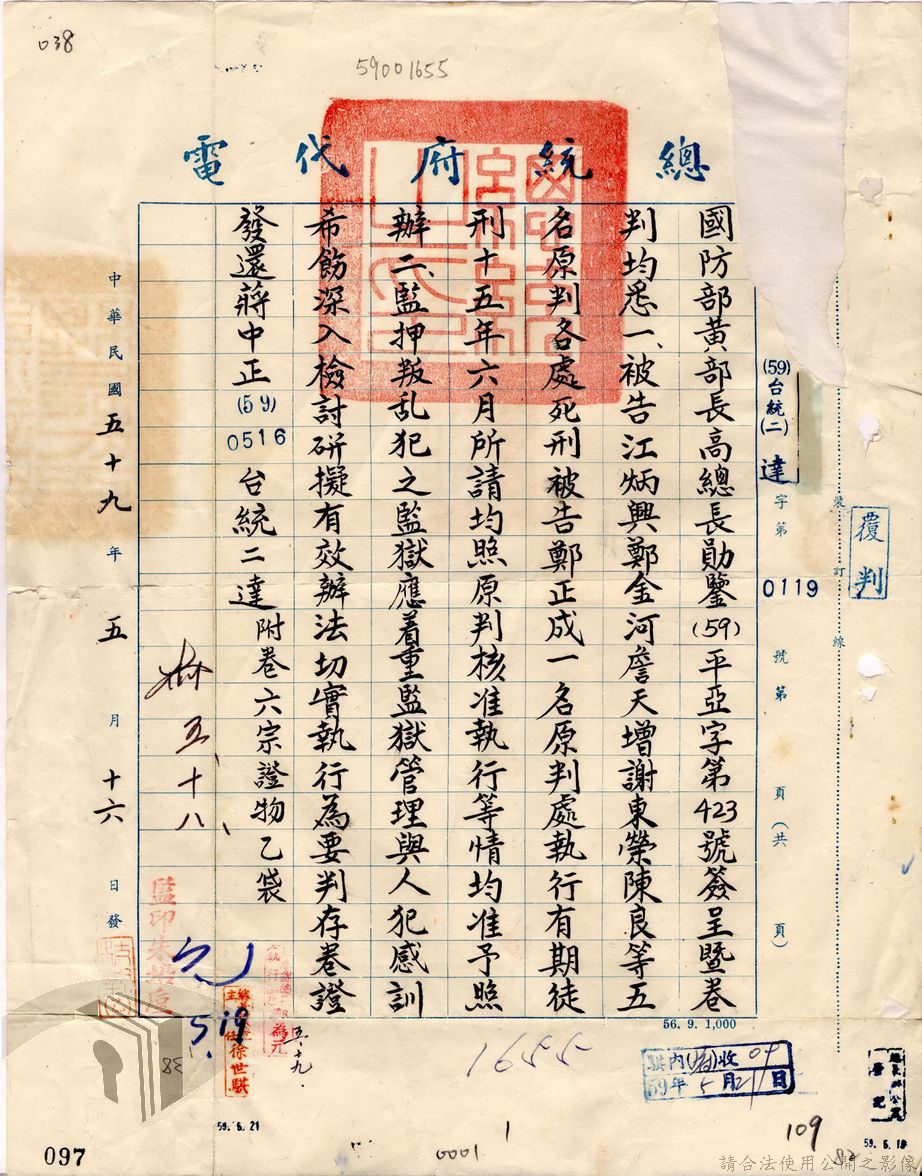 038
59001655
總統府代電
(59)台統(二)達字第0119號第 頁(共 頁)
裝訂線
覆判
國防部黃部長高總長勛鑒(59)平亞字第423號簽呈暨卷
判均悉一、被告江炳興鄭金河詹天增謝東榮陳良等五
名原判各處死刑被告鄭正成一名原判處執行有期徒
刑十五年六月所請均照原判核准執行等情均准予照
辦二、監押叛乱犯之監獄應着重監獄管理與人犯感訓
希飭深入檢討研擬有效辦法切實執行為要判存卷證
發還蔣中正(59)0516台統二達附卷六宗證物乙袋
五十八
中華民國五十九年五月十六日發
監印朱
5.19
徐世騏
為元
五.十九.
56. 9. 1,000
1655
騏內 收
59年5月2 日
59. 5. 21
109
82
83
097
0001
1
請合法使用公開之影像